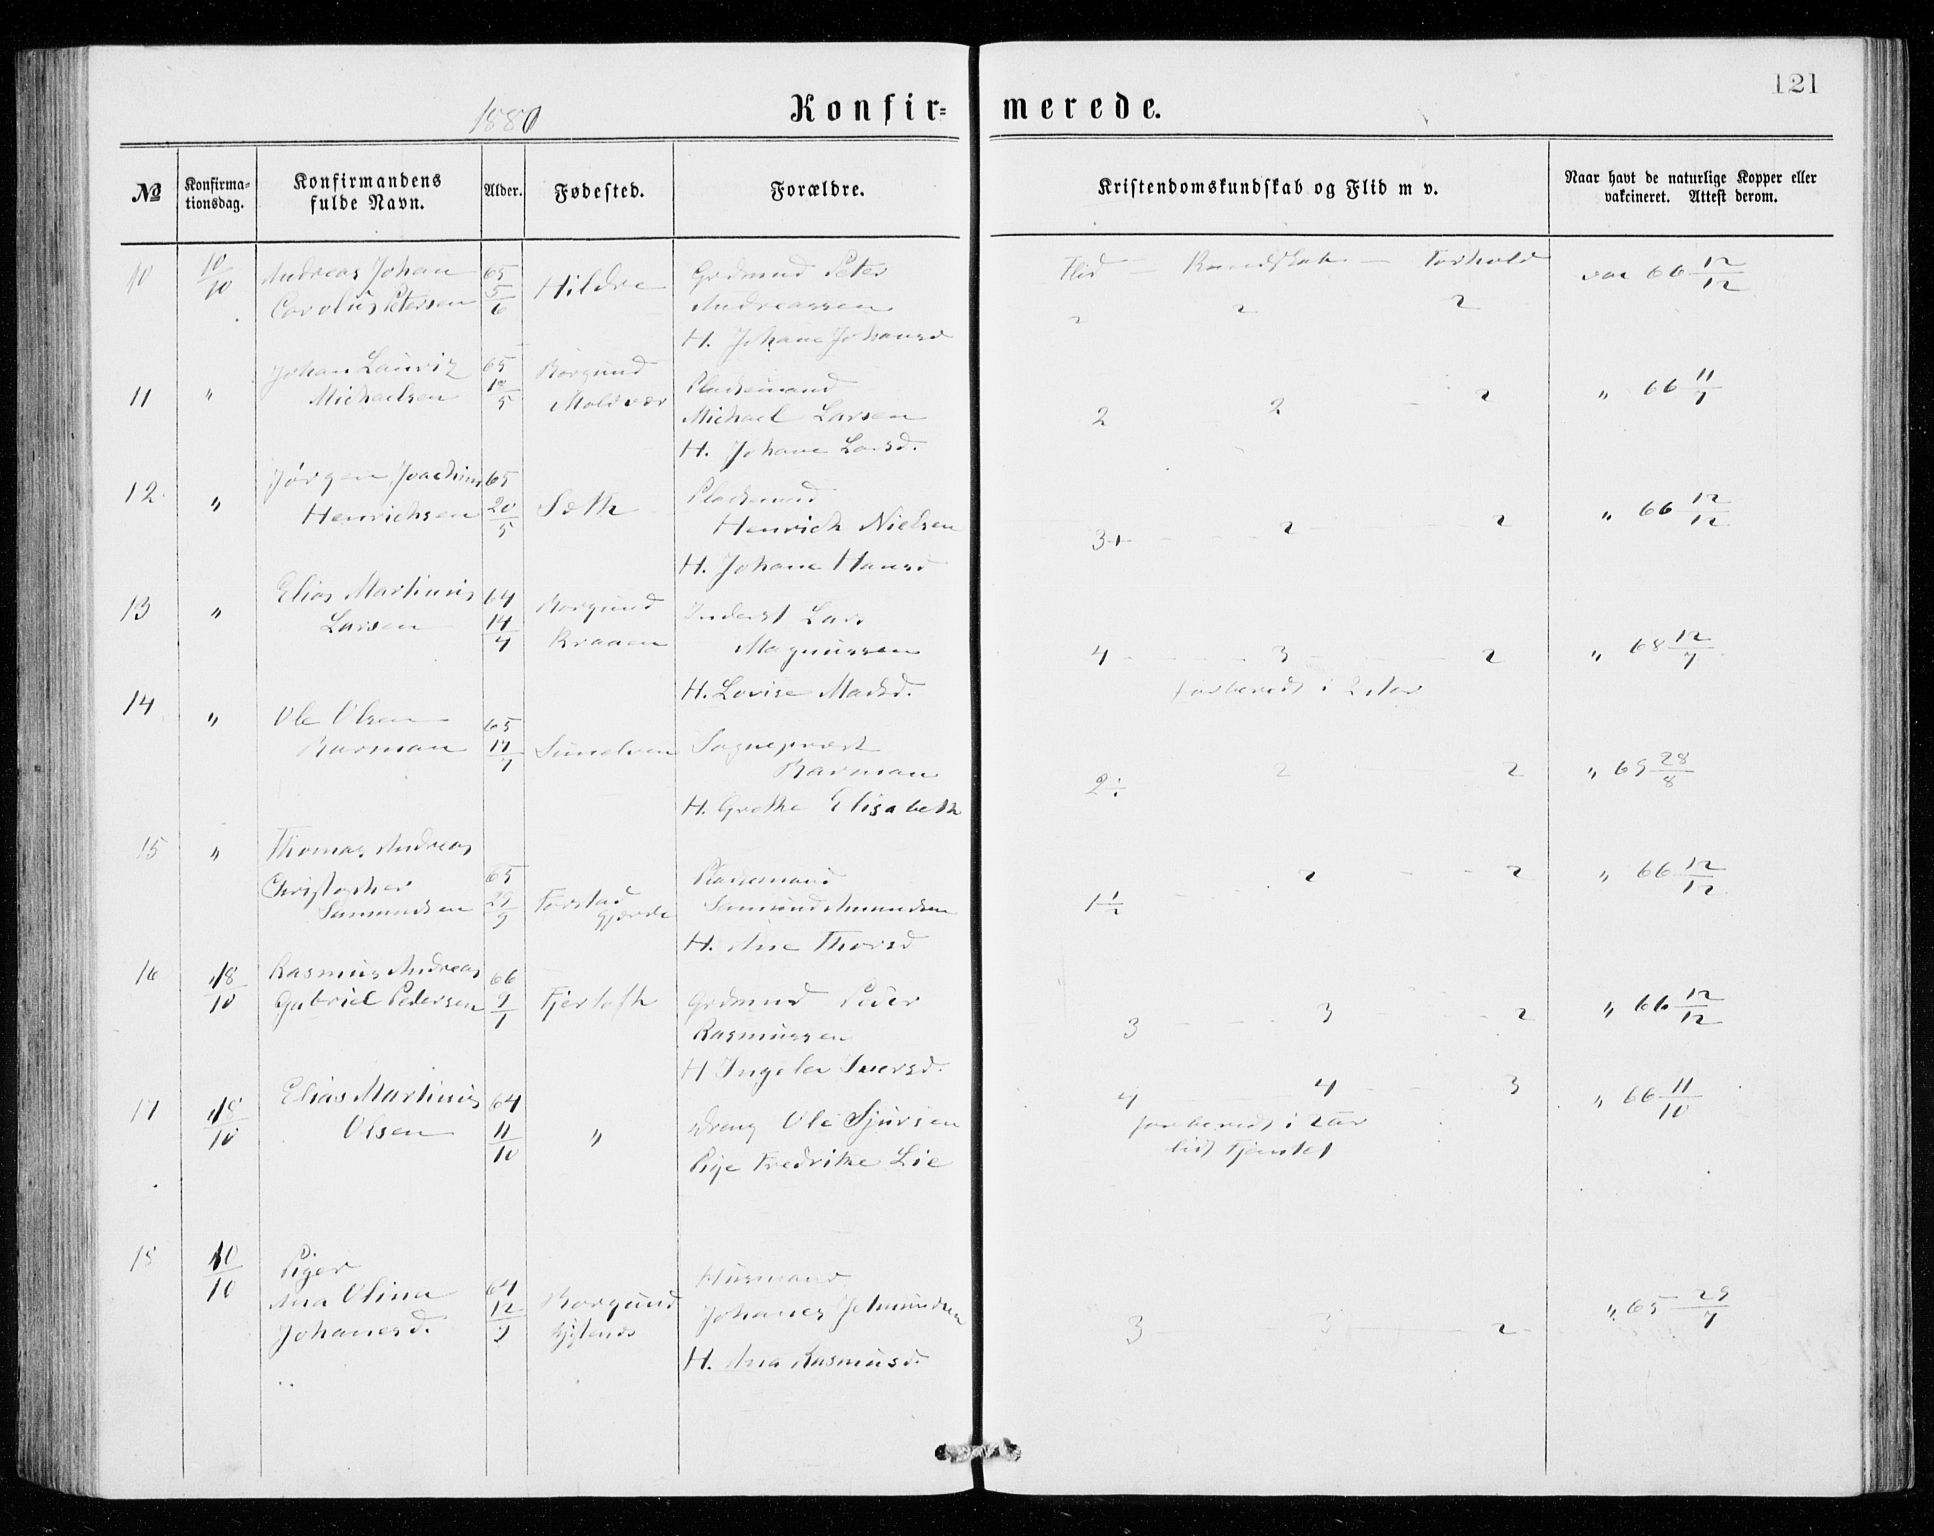 121
1880
Konfir=merede.
№
Konfirma=tionsdag.
Konfirmandens fulde Navn.
Alder.
Fødested.
Forældre.
Kristendomskundskab og Flid m v.
Naar havt de naturlige Kopper eller vakcineret. Attest derom.
10 10/10 Andreas Johan 65 Hildre Grdmand Peter Flid — Kundskab — Forhold vac 66 12/12
Carolus Petersen 5/6 Andreassen 2 2 2
H. Johane Johansd
11 " Johan Lauriz 65 Borgund Pladsmand " 66 11/7
Michaelsen 18/5 Moldvær Michael Larsen 2 2 2
H. Johane Larsd.
12 " Jørgen Joachim 65 Pladsmand " 66 12/12
Henrichsen 20/5 Sæth Henrich Nielsen 3+ 2 2
H. Johane Hansd
13 " Elias Martinus 64 Borgund Inderst Lars
Larsen 14/4 Kraaen Magnussen 4 3 2 " 68 12/7
H. Lovise Madsd. forbered i 2 Aar
14 " Ole Olsen 65
Barman 17/7 Sunelven Sognepræst 2 2 " 69 28/8
Barman
H. Grethe Elisabeth
15 " Thomas Andreas
Christopher 65 Pladsmand 1 1/2 2 2 " 66 12/12
Samundsen 29/9 Forstad Samund Amundsen
H. Ane Thorsd
16 18/10 Rasmus Andreas 66
Gabriel Pedersen 9/1 Fjertoft Grdmand Peder 3 3 2 " 66 12/12
Rasmussen
H Ingeber Iversd.
17 18/10 Elias Martinus 64 4 4 3 " 66 11/10
Olsen 11/10 " Dreng Ole Sjursen forbered i 2 aar
Pige Fredrikke Lie
18 10/10 Piger
Ana Olina 64 Borgund Husmand " 65 29/7
Johanesd. 12/9 Johanes 3 3 2
H. Ana Rasmusd.